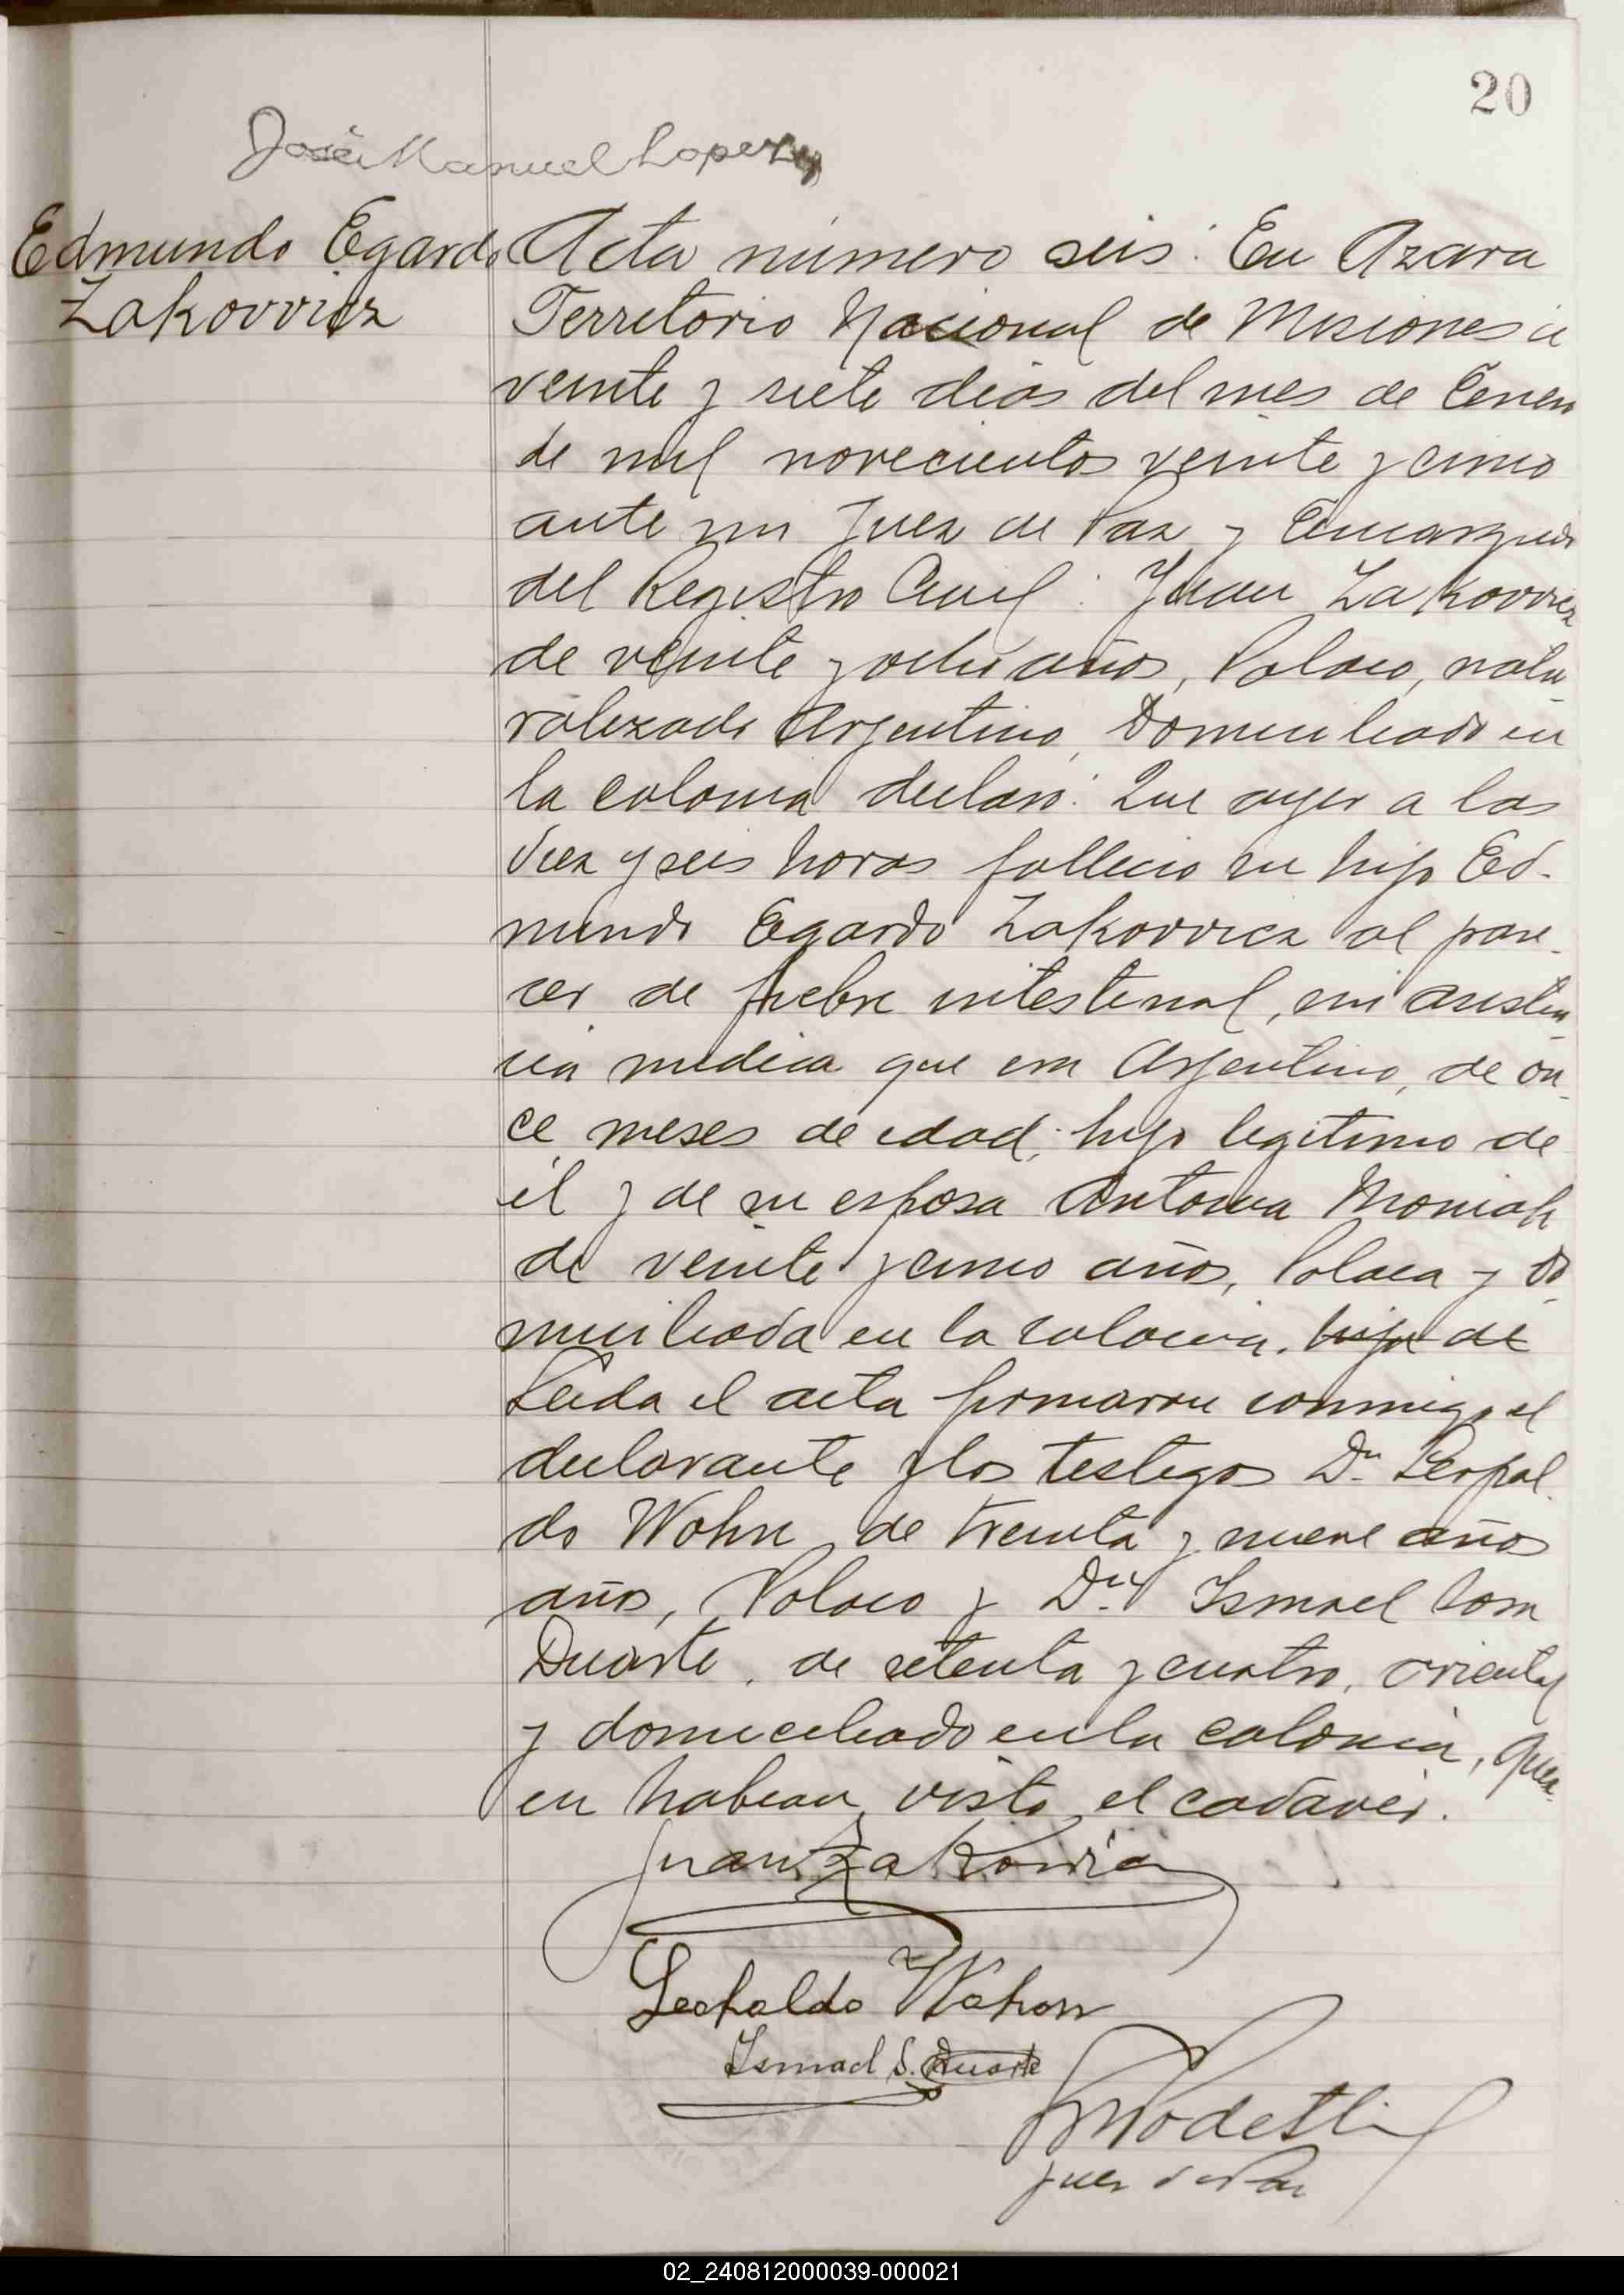 20
José Manuel Lopez
Edmundo Egardo
Zakovvicz
Acta número seis: En Azara
Territorio Nacional de Misiones a
veinte y siete dias del mes de Enero
de mil novecientos veinte y cinco
ante mi Juez de Paz y Encargado
del Registro Civil: Juan Zakovvicz
de veinte y ocho años, Polaco, natu-
ralizado Argentino, Domiciliado en
la colonia declaró: Que ayer a las
diez y seis horas fallecio su hijo Ed-
mundo Egardo Zakovvicz al pare-
cer de fiebre intestinal, sin asisten-
cia medica que era Argentino, de on-
ce meses de edad, hijo legitimo de
él y de su esposa Antonia Moniak
de veinte y cinco años, Polaca y do-
miciliada en la colonia. hija de
Leida el acta firmaron conmigo el
declarante y los testigos Dn Leopol-
do Wohn de treinta y nueve años
años, Polaco y Dn Ismael
Duarte, de setenta y cuatro, oriental
y domiciliado en la colonia, qui-
en habian visto el cadáver.
Juan Zakowicz
Leopoldo Wohon
Ismael S. Duarte
Juez de Paz
02_240812000039-000021